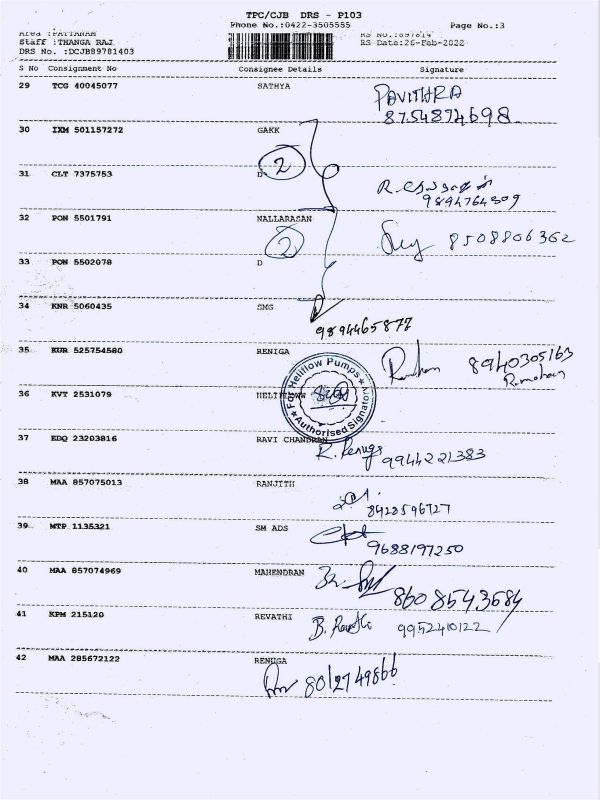 TPC/CJB DRS - P103
Phone No.:0422-3505555 Page No.:3
Area :PATTANAM RS No.:897814
Staff :THANGA RAJ RS Date:26-Feb-2022
DRS No. :DCJB89781403
S No Consignment No Consignee Details Signature
29 TCG 40045077 SATHYA PAVITHRA
8754874698
30 IXM 501157272 GAKK
2
31 CLT 7375753 D
9894764309
32 PON 5501791 NALLARASAN
2 8508806362
33 PON 5502078 D
34 KNR 5060435 SMG
9894465877
35 KUR 525754580 RENIGA 8940305163
Ramohan
For Heliflow Pumps
36 KVT 2531079 HELIFLOWW
Authorised Signatory
37 EDQ 23203816 RAVI CHANDRAN
R. Renuga 9944221383
38 MAA 857075013 RANJITH
8428596727
39 MTP 1135321 SM ADS
9688197250
40 MAA 857074969 MAHENDRAN
8608543684
41 KPM 215120 REVATHI B. Revathi 9952410122
42 MAA 285672122 RENUGA
8012749866